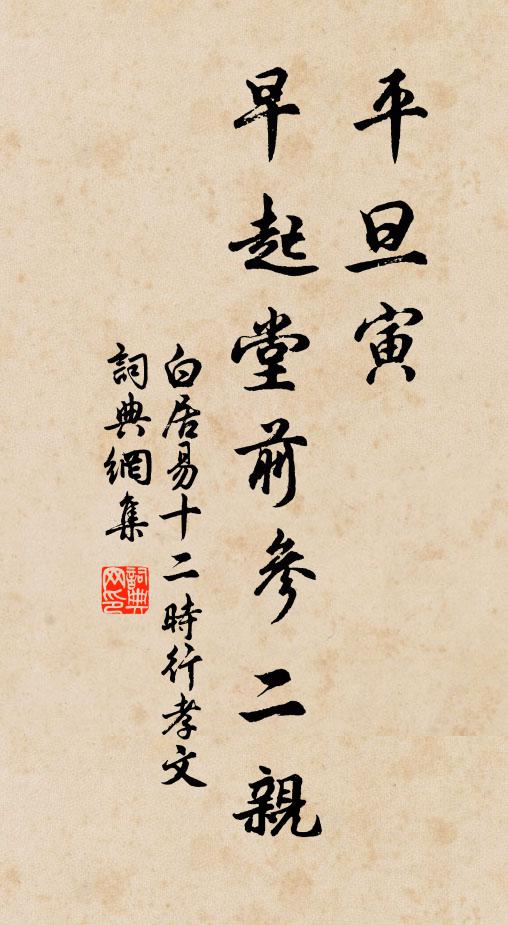 平旦寅
早起堂前參二親
白居易十二時行孝文
詞典網集
詞典网印